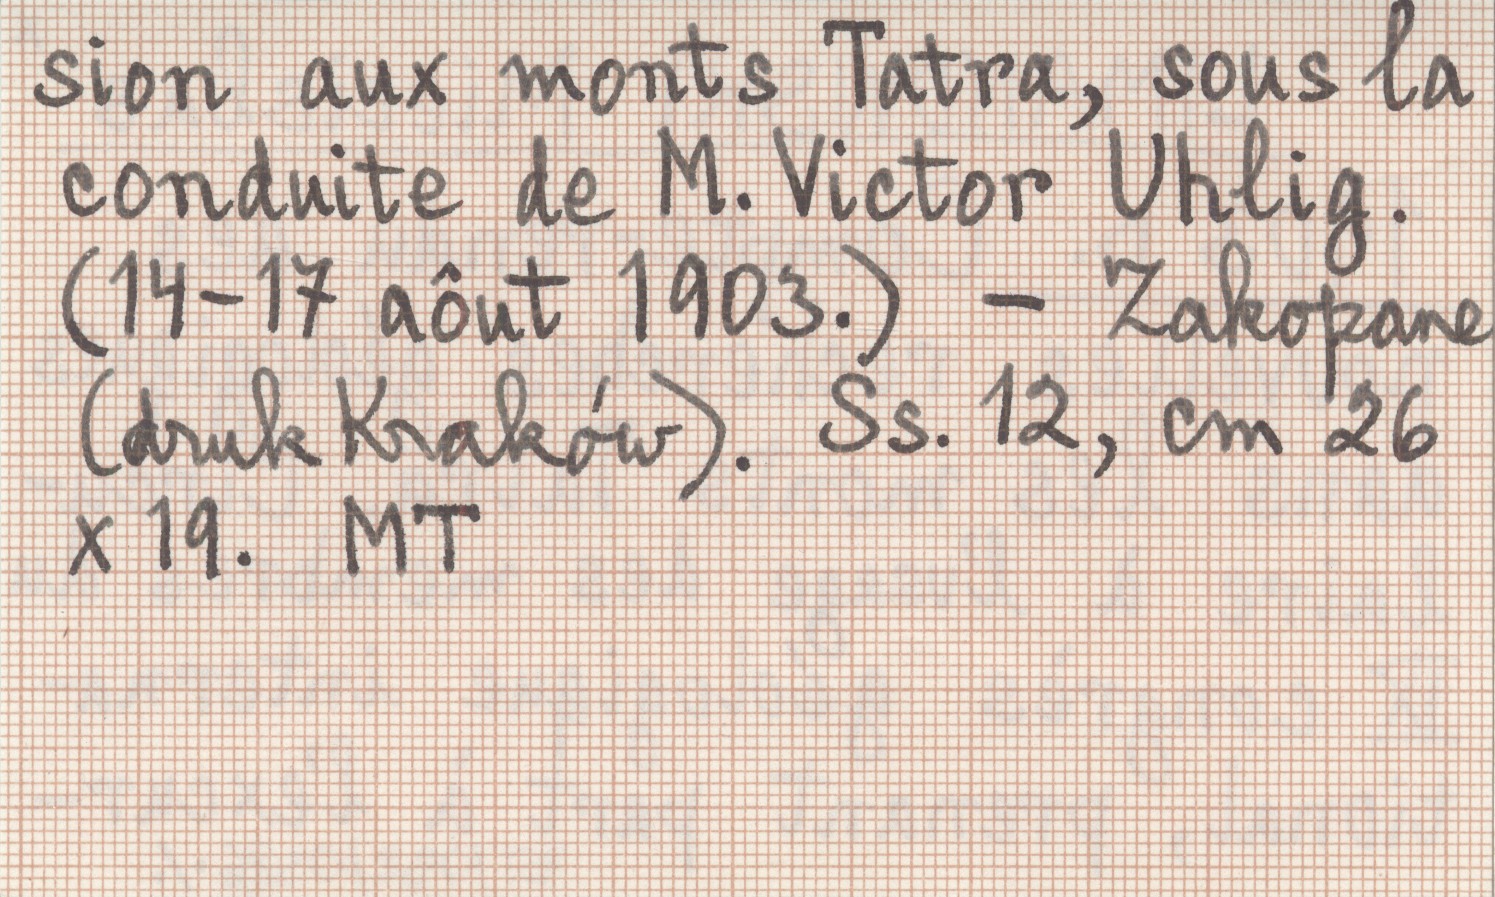 sion aux monts Tatra, sous la
conduite de M. Victor Uhlig.
(14-17 aôut 1903.) - Zakopane
(druk Kraków). Ss. 12, cm 26
x 19. MT